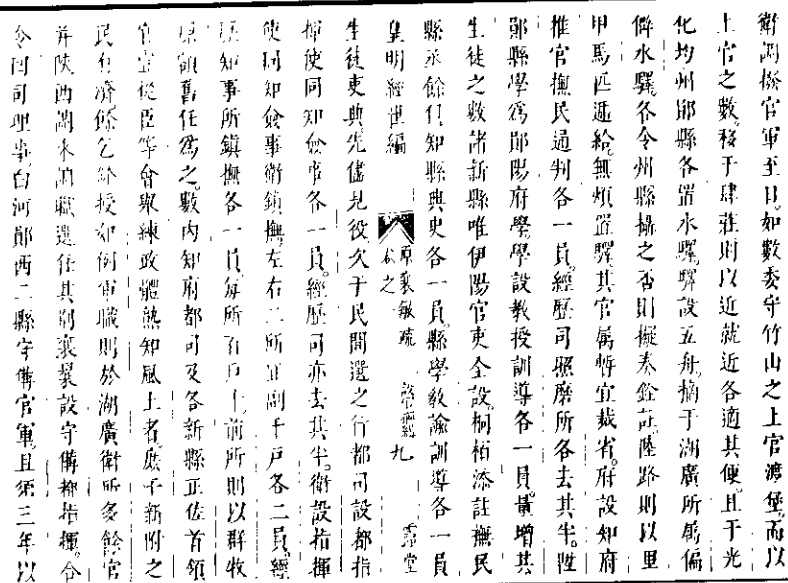 衛調撥官軍至日如數委守竹山之上官渡堡而以
上官之數移于肆莊則以近就近各適其便且于光
化均州鄖縣各置水驛驛設五舟摘于湖廣所屬偏
僻水驛各令州縣攝之否則擬奏銓註陸路則以里
甲馬匹遞給無煩置驛其官屬暫宜裁省府設知府
推官撫民通判各一員經歷司照磨所各去其半陞
鄖縣學爲鄖陽府學學設教授訓導各一員量增其
生徒之數諸新縣唯伊陽官吏全設桐柏添註撫民
縣丞餘付知縣典史各一員縣學教諭訓導各一員
皇明經世編 原襄敏疏 卷之 九 露堂
生徒吏典先儘見役久于民間選之行都司設都指
揮使同知僉事各一員經歷司亦去其半衛設指揮
使同知僉事衛鎮撫左右二所正副千戶各二員經
歷知事所鎮撫各一員每所百戶十前所則以群牧
原額舊任爲之數內知府都司及各新縣正佐首領
官宜從臣等會舉練政體熟知風土者庶于新附之
民有濟餘乞銓授如例軍職則於湖廣衛所多餘官
并陝西調來調職選任其荊襄裴設守備都指揮合
令回司理事白河鄖西二縣守備官軍且須三年以